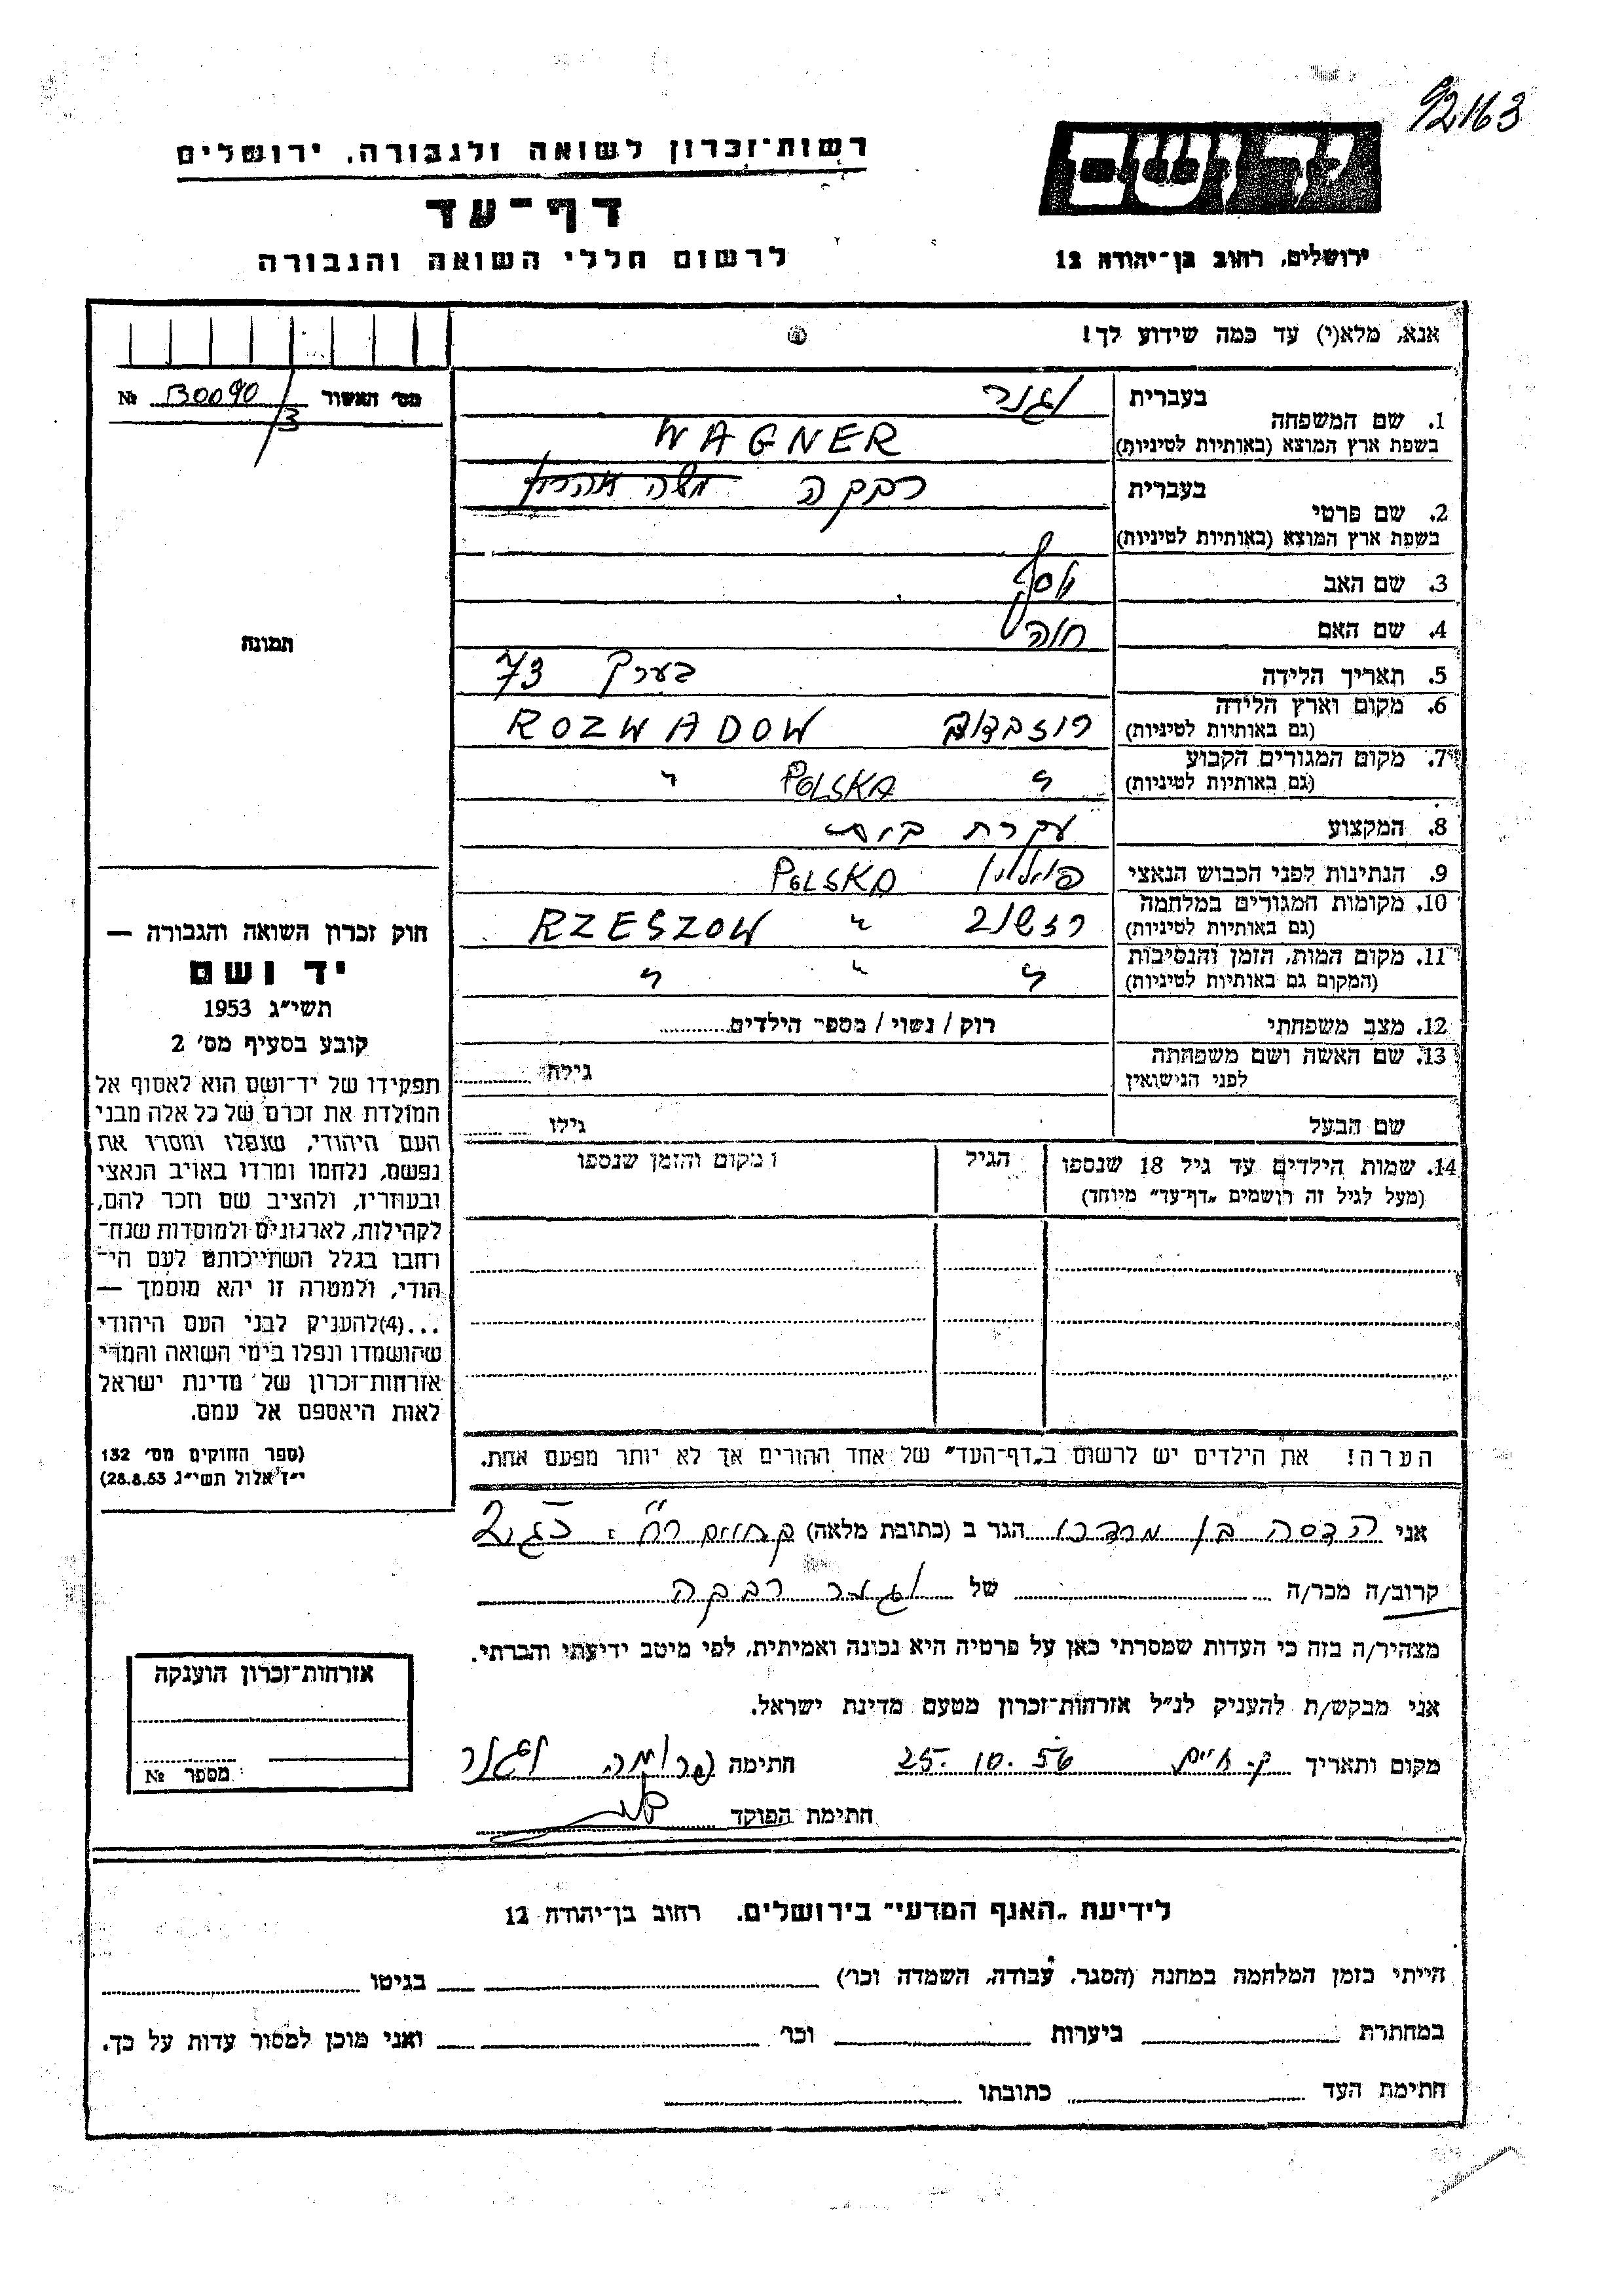 92163
יד ושם
רשות־זכרון לשואה ולגבורה, ירושלים
דף־עד
לרשום חללי השואה והגבורה
ירושלים, רחוב בן־יהודה 12
אנא, מלא(י) עד כמה שידוע לך!
מס׳ האשור № B0090/3
תמונה
1. שם המשפחה
בעברית וגנר
בשפת ארץ המוצא (באותיות לטיניות) WAGNER
2. שם פרטי
בעברית רבקה
בשפת ארץ המוצא (באותיות לטיניות)
3. שם האב יוסף
4. שם האם חוה
5. תאריך הלידה בערך 73
6. מקום וארץ הלידה רוזבדוב ROZWADOW
(גם באותיות לטיניות)
7. מקום המגורים הקבוע " POLSKA "
(גם באותיות לטיניות)
8. המקצוע עקרת בית
9. הנתינות לפני הכבוש הנאצי פולין POLSKA
10. מקומות המגורים במלחמה רזשוב " RZESZOW
(גם באותיות לטיניות)
11. מקום המות, הזמן והנסיבות " " "
(המקום גם באותיות לטיניות)
12. מצב משפחתי רוק / נשוי / מספר הילדים
13. שם האשה ושם משפחתה גילה
לפני הנישואין
שם הבעל גילו
14. שמות הילדים עד גיל 18 שנספו הגיל מקום והזמן שנספו
(מעל לגיל זה רושמים „דף־עד״ מיוחד)
חוק זכרון השואה והגבורה —
יד ושם
תשי״ג 1953
קובע בסעיף מס׳ 2
תפקידו של יד־ושם הוא לאסוף אל
המולדת את זכרם של כל אלה מבני
העם היהודי, שנפלו ומסרו את
נפשם, נלחמו ומרדו באויב הנאצי
ובעוזריו, ולהציב שם וזכר להם,
לקהילות, לארגונים ולמוסדות שנח־
רבו בגלל השתייכותם לעם הי־
הודי, ולמטרה זו יהא מוסמך —
...(4)להעניק לבני העם היהודי
שהושמדו ונפלו בימי השואה והמרי
אזרחות־זכרון של מדינת ישראל
לאות היאספם אל עמם.
(ספר החוקים מס׳ 132
י״ז אלול תשי״ג 28.8.53)
הערה! את הילדים יש לרשום ב„דף־העד״ של אחד ההורים אך לא יותר מפעם אחת.
אני הדסה בן מרדכי הגר ב (כתובת מלאה)
קרוב/ה מכר/ה של וגנר רבקה
מצהיר/ה בזה כי העדות שמסרתי כאן על פרטיה היא נכונה ואמיתית, לפי מיטב ידיעתי והכרתי.
אני מבקש/ת להעניק לנ״ל אזרחות־זכרון מטעם מדינת ישראל.
מקום ותאריך ק. חיים 25.10.56 חתימה פרומה וגנר
חתימת הפוקד
אזרחות־זכרון הוענקה
מספר №
לידיעת „האגף המדעי״ בירושלים. רחוב בן־יהודה 12
הייתי בזמן המלחמה במחנה (הסגר, עבודה, השמדה וכו׳) בגיטו
במחתרת ביערות וכו׳ ואני מוכן למסור עדות על כך.
חתימת העד כתובתו